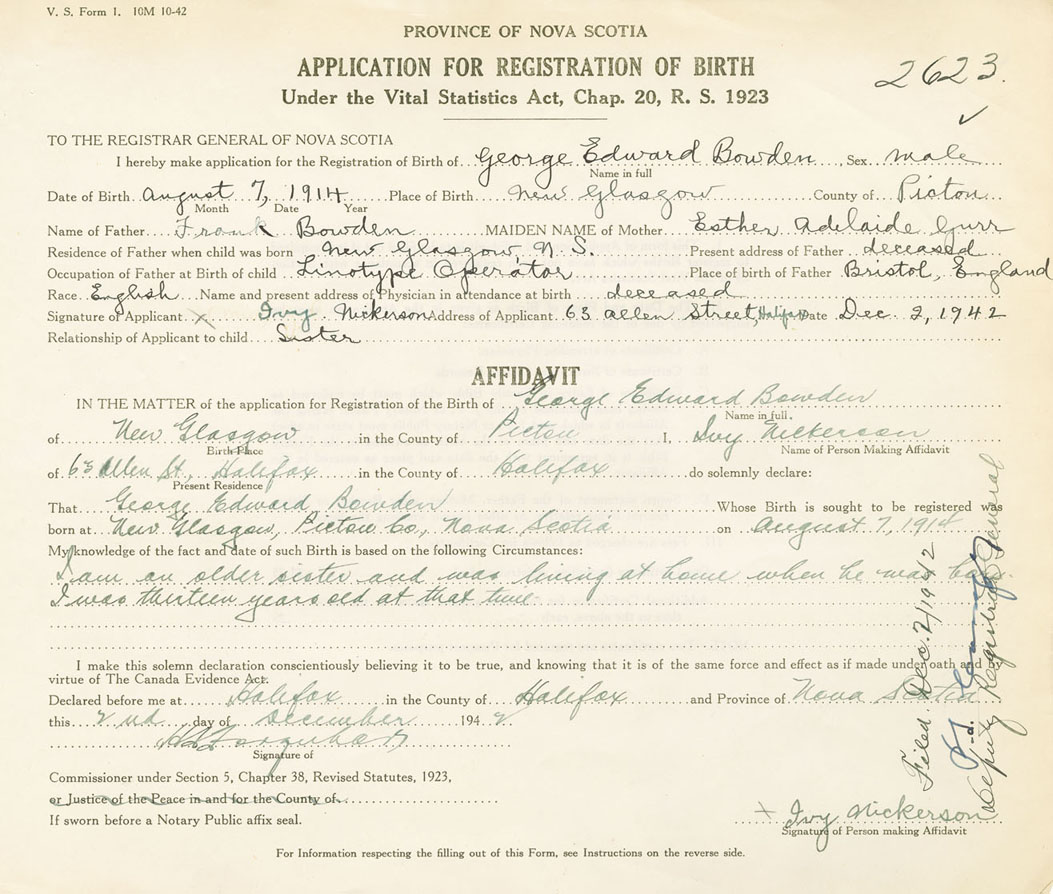 V. S. Form 1. 10M 10-42
PROVINCE OF NOVA SCOTIA
APPLICATION FOR REGISTRATION OF BIRTH
2623.
Under the Vital Statistics Act, Chap. 20, R. S. 1923
TO THE REGISTRAR GENERAL OF NOVA SCOTIA
I hereby make application for the Registration of Birth of George Edward Bowden Sex male
Name in full
Date of Birth August 7, 1914 Place of Birth New Glasgow County of Picton
Month Date Year
Name of Father Frank Bowden MAIDEN NAME of Mother Esther Adelaide Gurr
Residence of Father when child was born New Glasgow, N. S. Present address of Father deceased
Occupation of Father at Birth of child Linotype Operator Place of birth of Father Bristol, England
Race English Name and present address of Physician in attendance at birth deceased
Signature of Applicant x Ivy Nickerson Address of Applicant 63 Allen Street, Halifax Date Dec. 2, 1942
Relationship of Applicant to child Sister
AFFIDAVIT
IN THE MATTER of the application for Registration of the Birth of George Edward Bowden
Name in full.
of New Glasgow in the County of Picton I, Ivy Nickerson
Birth-Place Name of Person Making Affidavit
of 63 Allen St., Halifax in the County of Halifax do solemnly declare:
Present Residence
That George Edward Bowden Whose Birth is sought to be registered was
born at New Glasgow, Picton Co., Nova Scotia on August 7, 1914
My knowledge of the fact and date of such Birth is based on the following Circumstances:
I am an older sister and was living at home when he was born.
I was thirteen years old at that time.
I make this solemn declaration conscientiously believing it to be true, and knowing that it is of the same force and effect as if made under oath and by
virtue of The Canada Evidence Act.
Declared before me at Halifax in the County of Halifax and Province of Nova Scotia
this 2nd day of December 1942.
Signature of
Commissioner under Section 5, Chapter 38, Revised Statutes, 1923,
or Justice of the Peace in and for the County of
If sworn before a Notary Public affix seal.
x Ivy Nickerson
Signature of Person making Affidavit
For Information respecting the filling out of this Form, see Instructions on the reverse side.
Filed. Dec. 2/1942
Deputy Registrar General